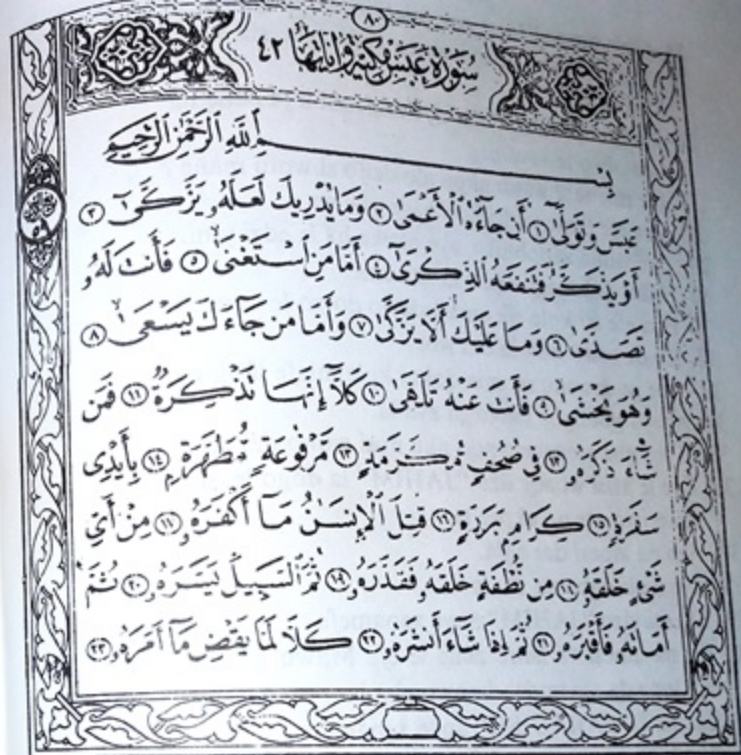 ٨٠
سُورَةُ عَبَسَ مَكِّيَّةٌ وَآيَاتُهَا ٤٢
بِسْمِ ٱللَّهِ ٱلرَّحْمَٰنِ ٱلرَّحِيمِ
عَبَسَ وَتَوَلَّىٰٓ ١ أَن جَآءَهُ ٱلْأَعْمَىٰ ٢ وَمَا يُدْرِيكَ لَعَلَّهُۥ يَزَّكَّىٰٓ ٣
أَوْ يَذَّكَّرُ فَتَنفَعَهُ ٱلذِّكْرَىٰٓ ٤ أَمَّا مَنِ ٱسْتَغْنَىٰ ٥ فَأَنتَ لَهُۥ
تَصَدَّىٰ ٦ وَمَا عَلَيْكَ أَلَّا يَزَّكَّىٰ ٧ وَأَمَّا مَن جَآءَكَ يَسْعَىٰ ٨
وَهُوَ يَخْشَىٰ ٩ فَأَنتَ عَنْهُ تَلَهَّىٰ ١٠ كَلَّآ إِنَّهَا تَذْكِرَةٌ ١١ فَمَن
شَآءَ ذَكَرَهُۥ ١٢ فِى صُحُفٍ مُّكَرَّمَةٍ ١٣ مَّرْفُوعَةٍ مُّطَهَّرَةٍۭ ١٤ بِأَيْدِى
سَفَرَةٍ ١٥ كِرَامٍۭ بَرَرَةٍ ١٦ قُتِلَ ٱلْإِنسَٰنُ مَآ أَكْفَرَهُۥ ١٧ مِنْ أَىِّ
شَىْءٍ خَلَقَهُۥ ١٨ مِن نُّطْفَةٍ خَلَقَهُۥ فَقَدَّرَهُۥ ١٩ ثُمَّ ٱلسَّبِيلَ يَسَّرَهُۥ ٢٠ ثُمَّ
أَمَاتَهُۥ فَأَقْبَرَهُۥ ٢١ ثُمَّ إِذَا شَآءَ أَنشَرَهُۥ ٢٢ كَلَّا لَمَّا يَقْضِ مَآ أَمَرَهُۥ ٢٣